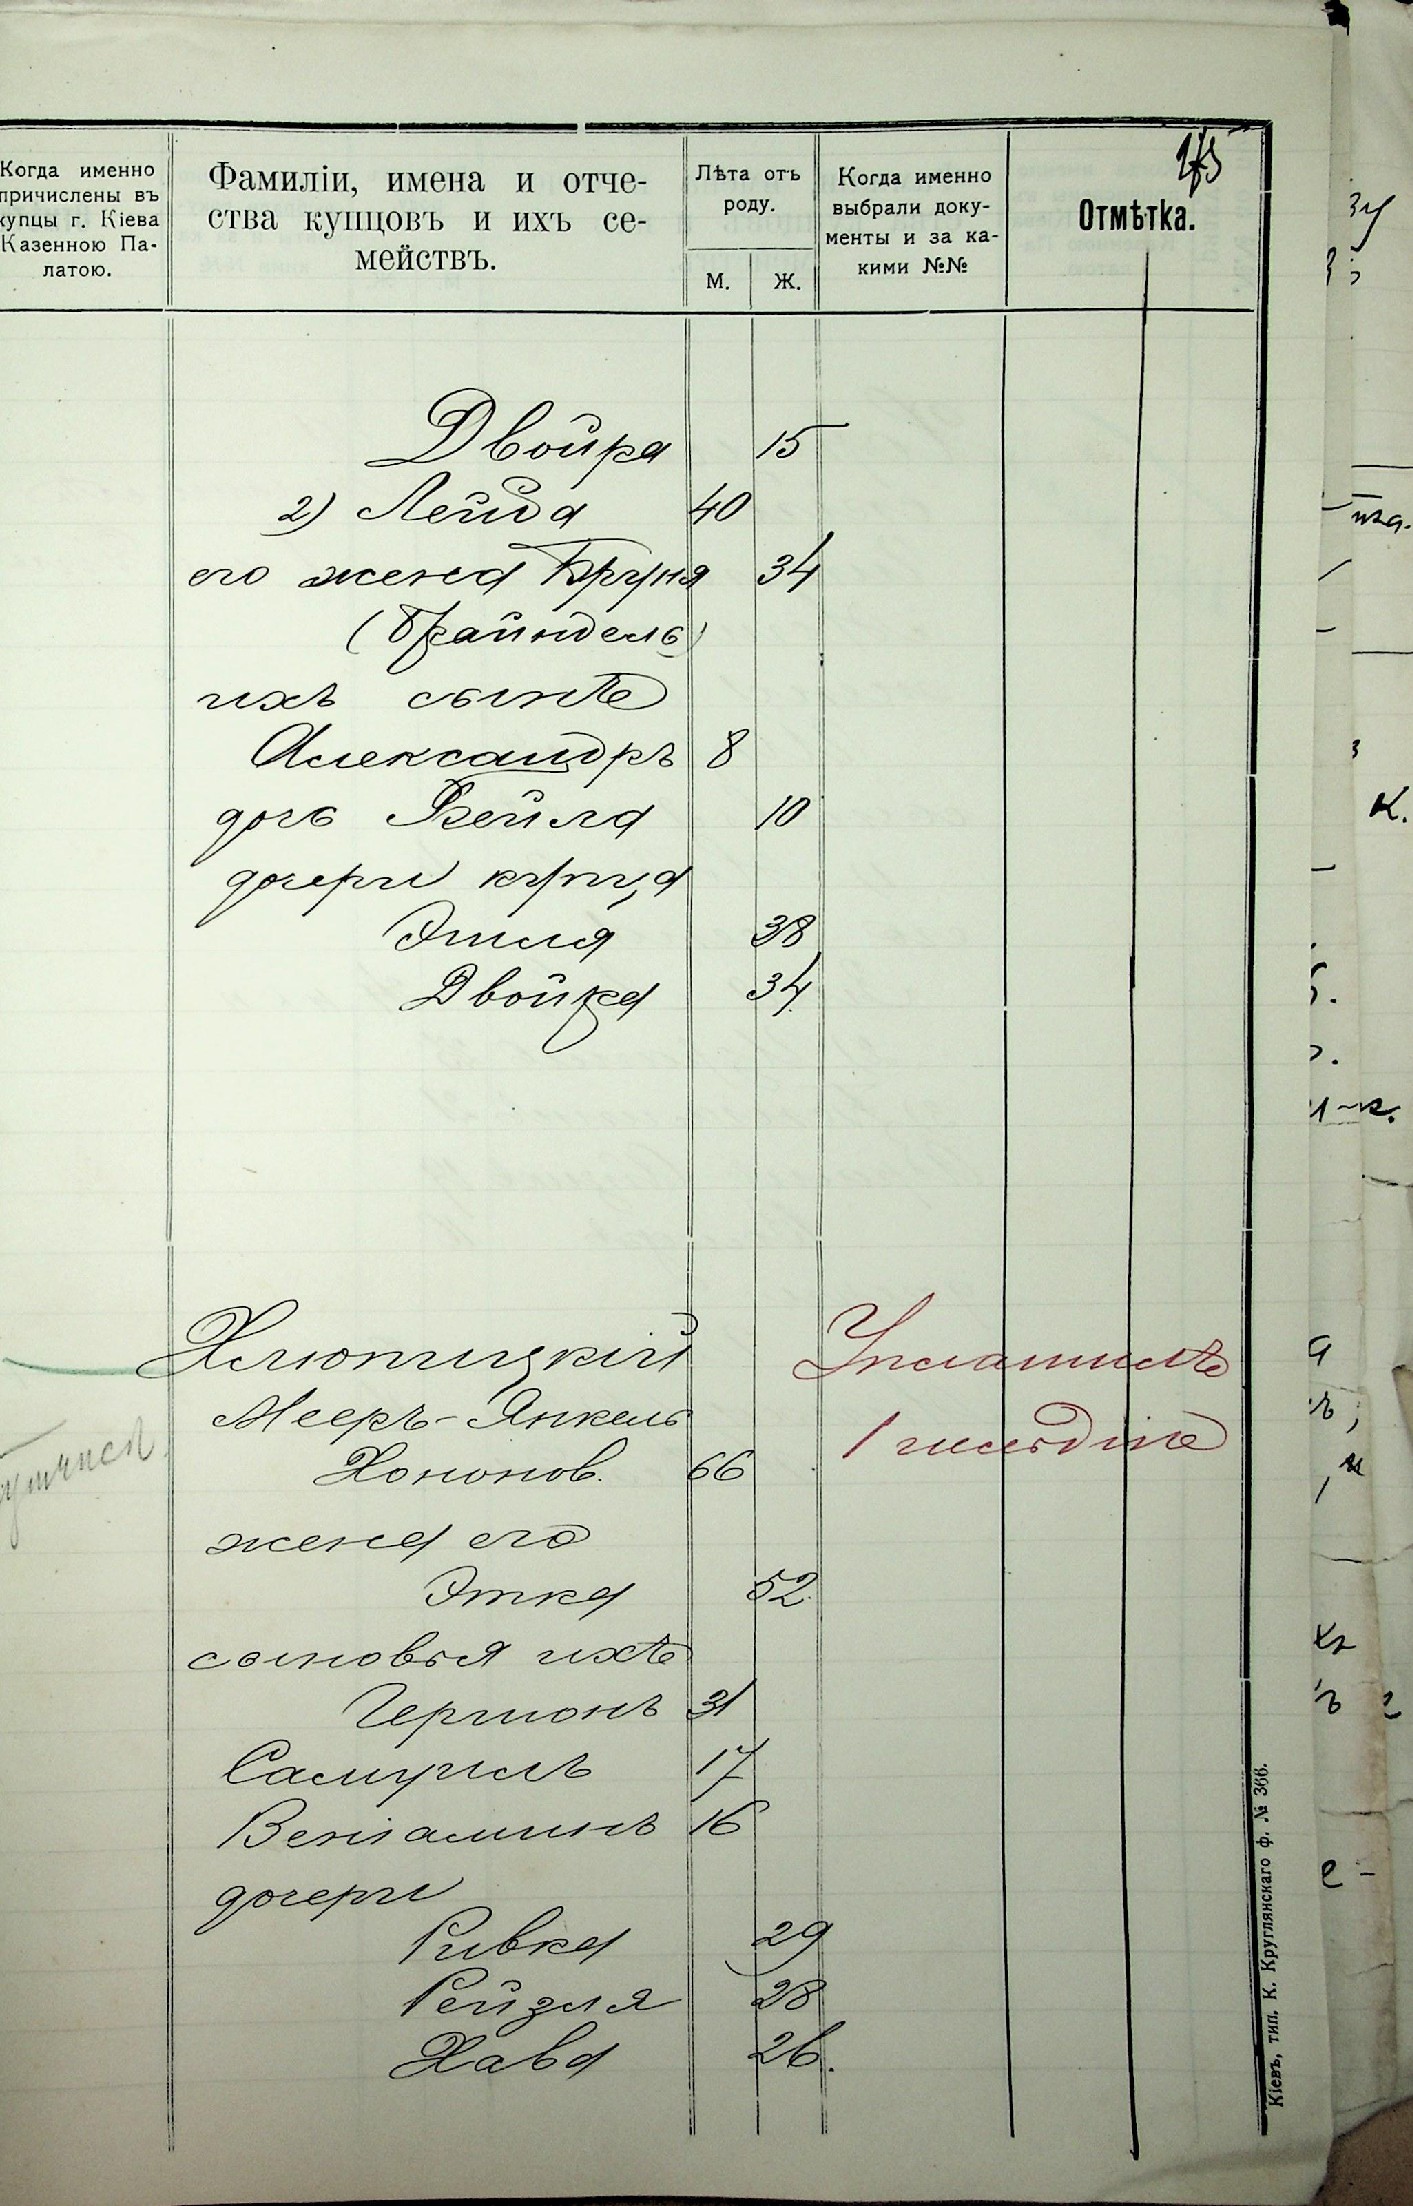 Когда именно
причислены въ
купцы г. Кіева
Казенною Па-
латою.
Фамиліи, имена и отче-
ства купцовъ и ихъ се-
мействъ.
Лѣта отъ
роду.
М. Ж.
Когда именно
выбрали доку-
менты и за ка-
кими №№
Отмѣтка.
Двойра 15
2) Лейба 40
его жена Бруня 34
(Брайндель)
ихъ сынъ
Александръ 8
дочь Бейла 10
дочери купца
Этля 38
Двойра 34
Хлюпицкій
Мееръ-Янкель
Хононов. 66
жена его
Этка 52
сыновья ихъ
Гершонъ 31
Самуилъ 17
Веніаминъ 16
дочери
Ривка 29
Рейзля 28
Хава 26.
1 гильдіи
Кіевъ, тип. К. Круглянскаго ф. № 366.